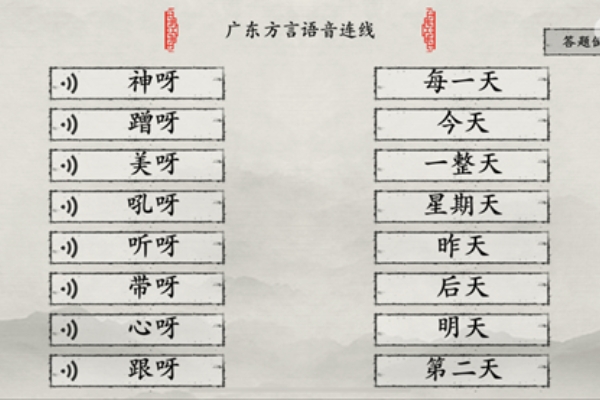 广东方言语音连线
答题
神呀 每一天
蹭呀 今天
美呀 一整天
吼呀 星期天
听呀 昨天
带呀 后天
心呀 明天
跟呀 第二天